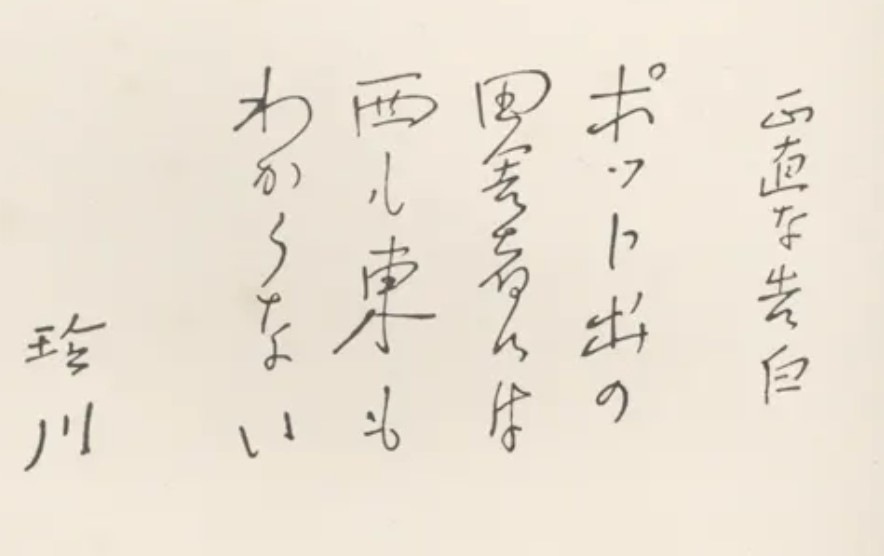 正直な告白
ポット出の
田舎者には
西も東も
わからない
珍川